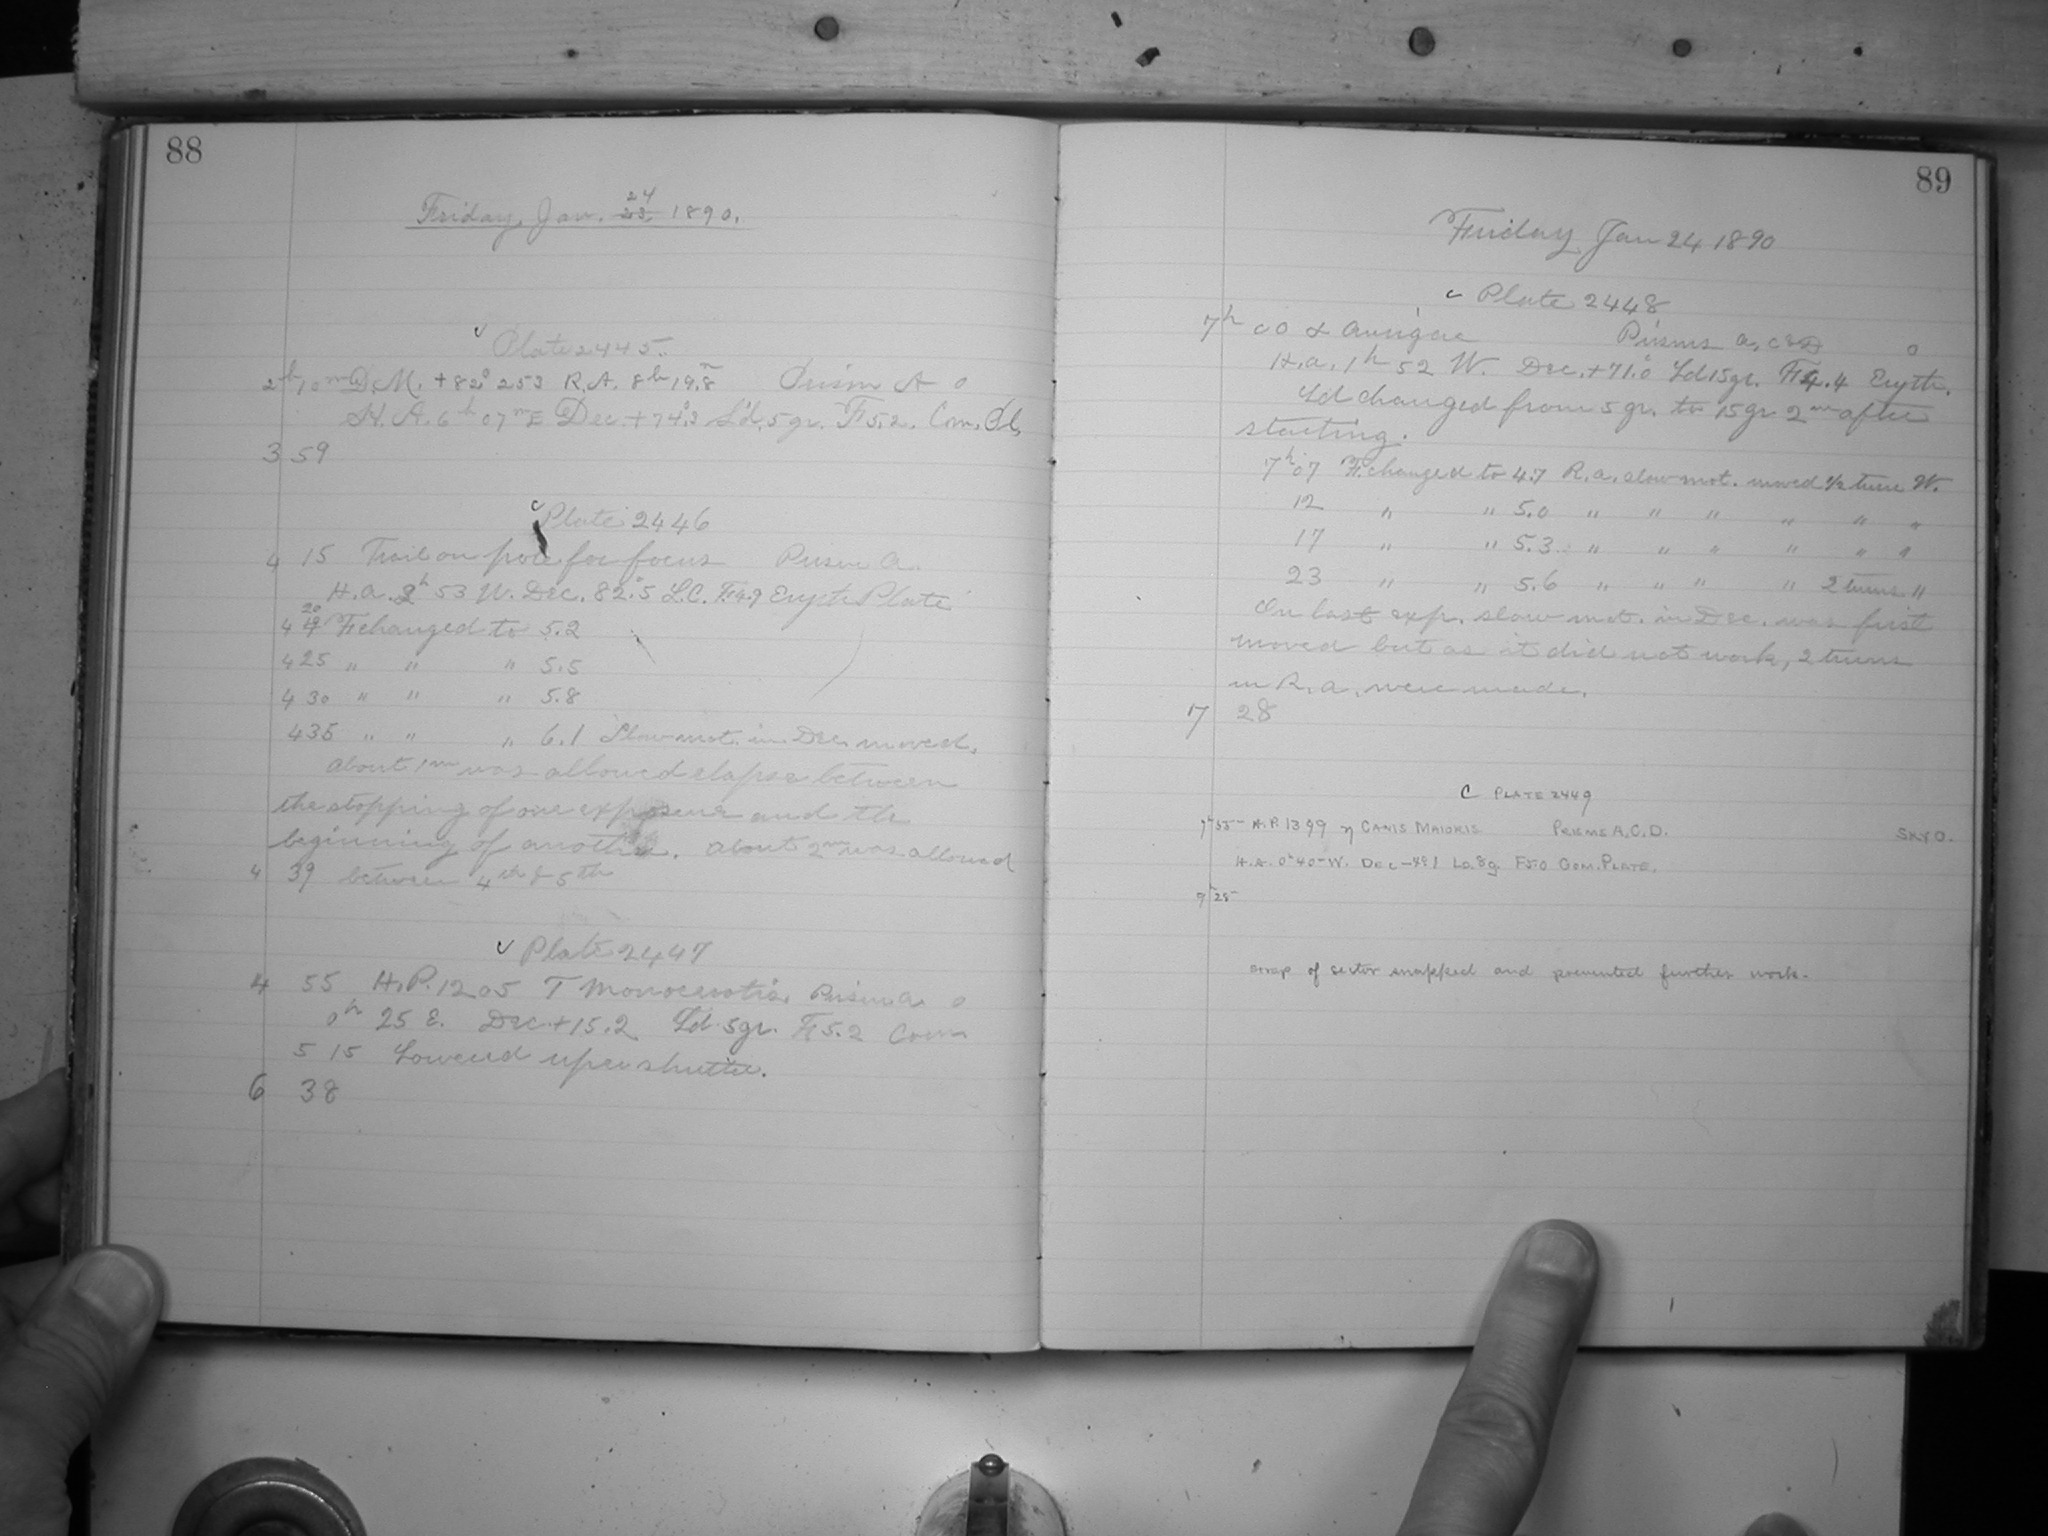 88
Friday, Jan. 24 23. 1890.
Plate 2445.
2h 10m D.M. +82° 253 R.A. 8h 19.8m Prism A o
H.A. 6h 07m E Dec. +74°.3 Ld. 5 gr. F 5.2. Com. Pl.
3 59
c Plate 2446
4 15 Trail on pole for focus Prism A.
H.a. 2h 53 W. Dec. 82°.5 L.C. F 4.9 Eryth Plate
4 20 F changed to 5.2
4 25 " " " 5.5
4 30 " " " 5.8
4 35 " " " 6.1 Slow mot. in Dec. moved.
About 1m was allowed elapse between
the stopping of one exposure and the
beginning of another. About 2m was allowed
4 39 between 4th & 5th
Plate 2447
4 55 H.P. 1205 T Monocerotis Prism a o
0h 25 E. Dec. +15.2 Ld 5gr. F 5.2 Com
5 15 Lowered upper shutter.
6 38
89
Friday Jan 24 1890
c Plate 2448
7h 00 α Aurigae Prisms a, c & D o
H.a. 1h 52 W. Dec. +71.0 Ld 15gr. F 4.4 Eryth.
Ld changed from 5 gr. to 15gr 2m after
starting.
7h 07 F. changed to 4.7 R.a. slow mot. moved 1/2 turn W.
12 " " 5.0 " " " " " "
17 " " 5.3 " " " " " "
23 " " 5.6 " " " " 2 turns "
On last exp. slow mot. in Dec. was first
moved but as it did not work, 2 turns
in R.a. were made.
7 28
C PLATE 2449
H.P. 1399 η CANIS MAIORIS PRISMS A.C.D. SKY O.
H.A. 0h 40m W. DEC LD. 8g F 5.0 COM. PLATE.
9 25
strap of sector snapped and prevented further work.